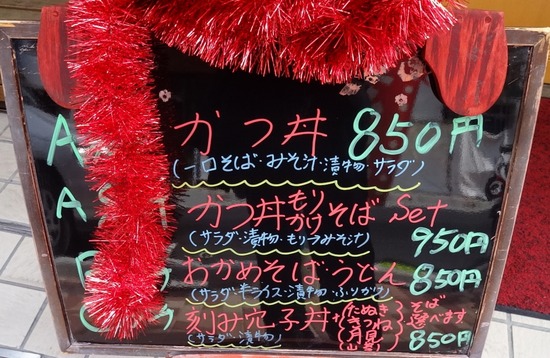 A かつ丼 850円
(一口そば・みそ汁・漬物・サラダ)
A かつ丼 もり かけ そば Set
(サラダ・漬物・もりのみそ汁) 950円
おかめそば・うどん 850円
(サラダ・半ライス・漬物・ふりかけ)
刻み穴子丼 たぬき きつね 月見 山菜 そば 選べます
(サラダ・漬物) 850円